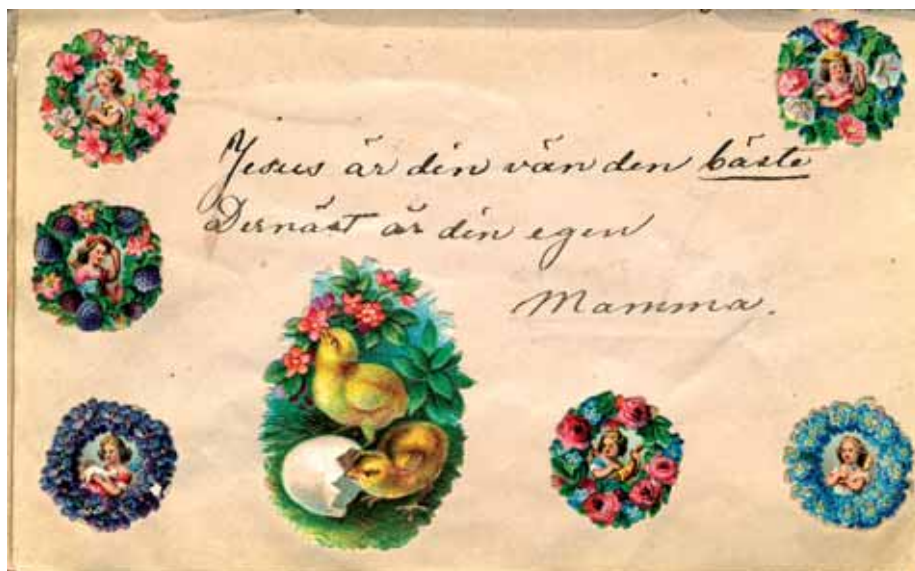 Jesus är din vän den bäste
Dernäst är din egen
Mamma.